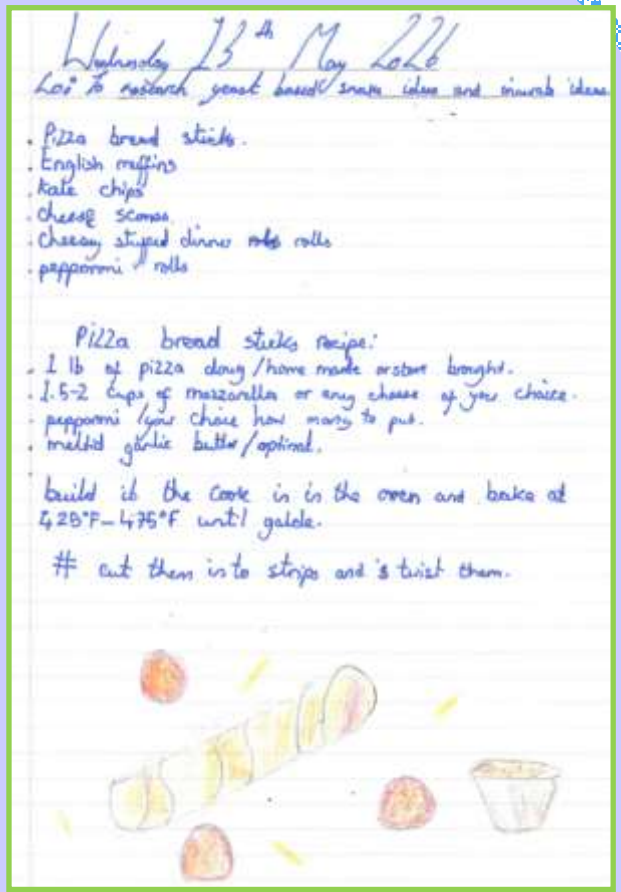 Wednesday 13th May 2026
Loi To research yeast based snack ideas and ideas
. Pizza bread sticks.
. English muffins
. kale chips
. cheese scones
. cheesy stuffed dinner rolls
. pepporoni rolls
Pizza bread sticks recipe:
. 1 lb of pizza doug /home made orstore brought.
. 1.5-2 Cups of mozzarella or any cheese of your choice.
. pepporoni /your choice how many to put.
. meltid garlic butter/optinal.
.
build it the cook in in the oven and bake at
425°F-475°F until
# cut them into strips and twist them.